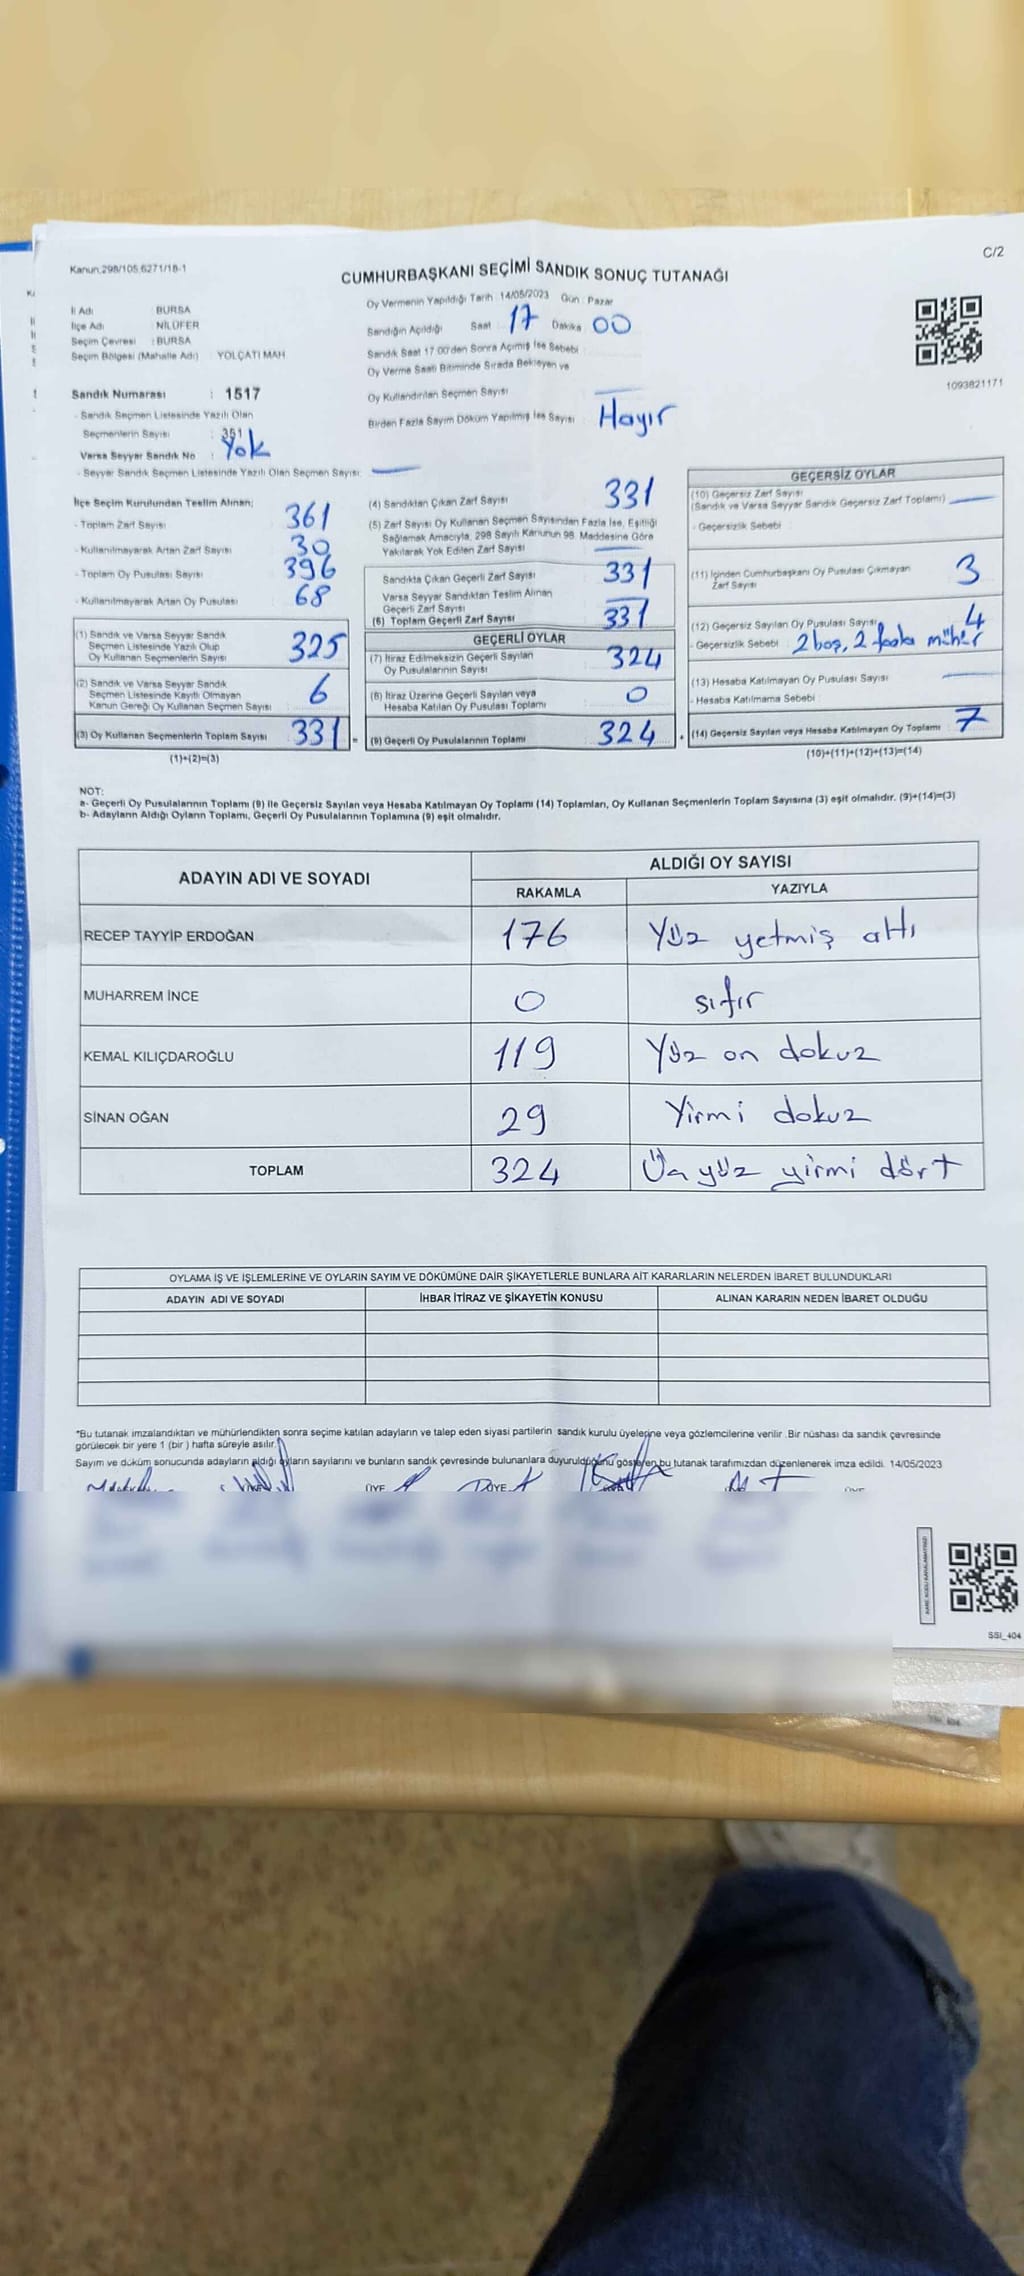 C/2
Kanun;298/105,6271/18-1
CUMHURBAŞKANI SEÇİMİ SANDIK SONUÇ TUTANAĞI
İl Adı BURSA
İlçe Adı NİLÜFER
Seçim Çevresi : BURSA
Seçim Bölgesi (Mahalle Adı) : YOLÇATI MAH
Sandık Numarası : 1517
- Sandık Seçmen Listesinde Yazılı Olan
Seçmenlerin Sayısı : 351
Varsa Seyyar Sandık No : Yok
- Seyyar Sandık Seçmen Listesinde Yazılı Olan Seçmen Sayısı
Oy Vermenin Yapıldığı Tarih : 14/05/2023 Gün : Pazar
Sandığın Açıldığı Saat 17 Dakika 00
Sandık Saat 17:00'den Sonra Açılmış İse Sebebi
Oy Verme Saati Bitiminde Sırada Bekleyen ve
Oy Kullandırılan Seçmen Sayısı
Birden Fazla Sayım Döküm Yapılmış İse Sayısı Hayır
1093821171
İlçe Seçim Kurulundan Teslim Alınan;
- Toplam Zarf Sayısı 361
- Kullanılmayarak Artan Zarf Sayısı 30
- Toplam Oy Pusulası Sayısı 396
- Kullanılmayarak Artan Oy Pusulası 68
(1) Sandık ve Varsa Seyyar Sandık
Seçmen Listesinde Yazılı Olup
Oy Kullanan Seçmenlerin Sayısı 325
(2) Sandık ve Varsa Seyyar Sandık
Seçmen Listesinde Kayıtlı Olmayan
Kanun Gereği Oy Kullanan Seçmen Sayısı 6
(3) Oy Kullanan Seçmenlerin Toplam Sayısı 331 =
(1)+(2)=(3)
(4) Sandıktan Çıkan Zarf Sayısı 331
(5) Zarf Sayısı Oy Kullanan Seçmen Sayısından Fazla İse, Eşitliği
Sağlamak Amacıyla, 298 Sayılı Kanunun 98. Maddesine Göre
Yakılarak Yok Edilen Zarf Sayısı
Sandıkta Çıkan Geçerli Zarf Sayısı 331
Varsa Seyyar Sandıktan Teslim Alınan
Geçerli Zarf Sayısı
(6) Toplam Geçerli Zarf Sayısı 331
GEÇERLİ OYLAR
(7) İtiraz Edilmeksizin Geçerli Sayılan
Oy Pusulalarının Sayısı 324
(8) İtiraz Üzerine Geçerli Sayılan veya
Hesaba Katılan Oy Pusulası Toplamı 0
(9) Geçerli Oy Pusulalarının Toplamı 324 +
GEÇERSİZ OYLAR
(10) Geçersiz Zarf Sayısı
(Sandık ve Varsa Seyyar Sandık Geçersiz Zarf Toplamı)
- Geçersizlik Sebebi
(11) İçinden Cumhurbaşkanı Oy Pusulası Çıkmayan
Zarf Sayısı 3
(12) Geçersiz Sayılan Oy Pusulası Sayısı 4
- Geçersizlik Sebebi 2 boş, 2 fazla mühür
(13) Hesaba Katılmayan Oy Pusulası Sayısı
- Hesaba Katılmama Sebebi
(14) Geçersiz Sayılan veya Hesaba Katılmayan Oy Toplamı 7
(10)+(11)+(12)+(13)=(14)
NOT:
a- Geçerli Oy Pusulalarının Toplamı (9) ile Geçersiz Sayılan veya Hesaba Katılmayan Oy Toplamı (14) Toplamları, Oy Kullanan Seçmenlerin Toplam Sayısına (3) eşit olmalıdır. (9)+(14)=(3)
b- Adayların Aldığı Oyların Toplamı, Geçerli Oy Pusulalarının Toplamına (9) eşit olmalıdır.
ADAYIN ADI VE SOYADI ALDIĞI OY SAYISI
RAKAMLA YAZIYLA
RECEP TAYYİP ERDOĞAN 176 Yüz yetmiş altı
MUHARREM İNCE 0 sıfır
KEMAL KILIÇDAROĞLU 119 Yüz on dokuz
SİNAN OĞAN 29 Yirmi dokuz
TOPLAM 324 Üç yüz yirmi dört
OYLAMA İŞ VE İŞLEMLERİNE VE OYLARIN SAYIM VE DÖKÜMÜNE DAİR ŞİKAYETLERLE BUNLARA AİT KARARLARIN NELERDEN İBARET BULUNDUKLARI
ADAYIN ADI VE SOYADI İHBAR İTİRAZ VE ŞİKAYETİN KONUSU ALINAN KARARIN NEDEN İBARET OLDUĞU
*Bu tutanak imzalandıktan ve mühürlendikten sonra seçime katılan adayların ve talep eden siyasi partilerin sandık kurulu üyelerine veya gözlemcilerine verilir .Bir nüshası da sandık çevresinde
görülecek bir yere 1 (bir ) hafta süreyle asılır.
Sayım ve döküm sonucunda adayların aldığı oyların sayılarını ve bunların sandık çevresinde bulunanlara duyurulduğunu gösteren bu tutanak tarafımızdan düzenlenerek imza edildi. 14/05/2023
ÜYE ÜYE
SSI_404